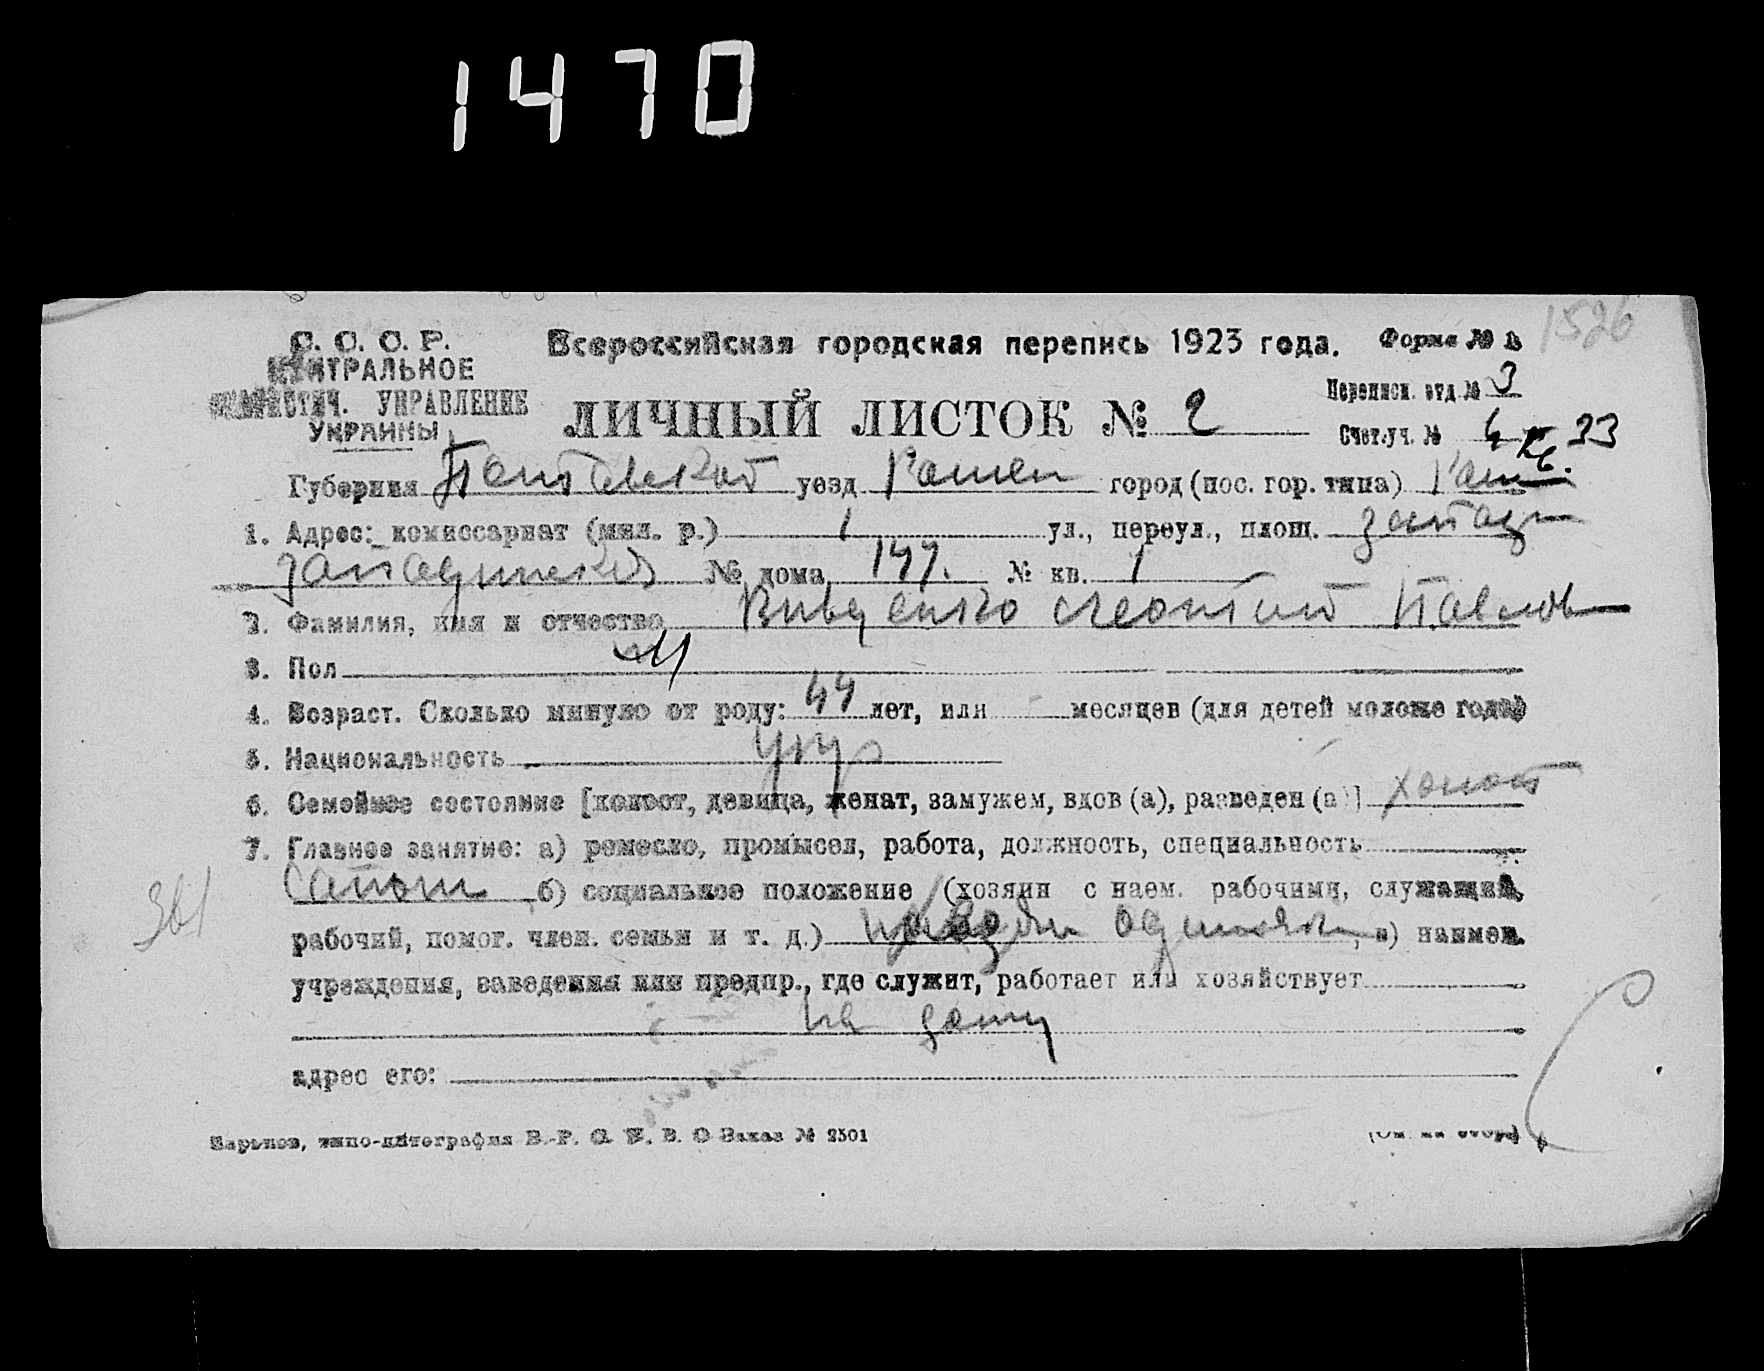 1470
1526
С. С. С. Р. Всероссийская городская перепись 1923 года. Форма №
ЦЕНТРАЛЬНОЕ
СТАТИСТИЧ. УПРАВЛЕНИЕ
УКРАИНЫ
ЛИЧНЫЙ ЛИСТОК № 2
Переписн. отд. № 3
Счет. уч. № 4 кв. 33
Губерния Полтавской уезд Ромен город (пос. гор. типа) Ром
1. Адрес: комиссариат (мил. р.) 1 ул., переул., площ.
№ дома 147. № кв. 1
2. Фамилия, имя и отчество Павлов
3. Пол М
4. Возраст. Сколько минуло от роду: 44 лет, или - месяцев (для детей моложе года)
5. Национальность Укр
6. Семейное состояние [холост, девица, женат, замужем, вдов (а), разведен (а)] холост
7. Главное занятие: а) ремесло, промысел, работа, должность, специальность
Сапожн б) социальное положение (хозяин с наем. рабочими, служащий,
рабочий, помог. член. семьи и т. д.) одиночка, в) наимен.
учреждения, заведения или предпр., где служит, работает или хозяйствует
на дому
адрес его:
361
Харьков, типо-литография Заказ № 2501